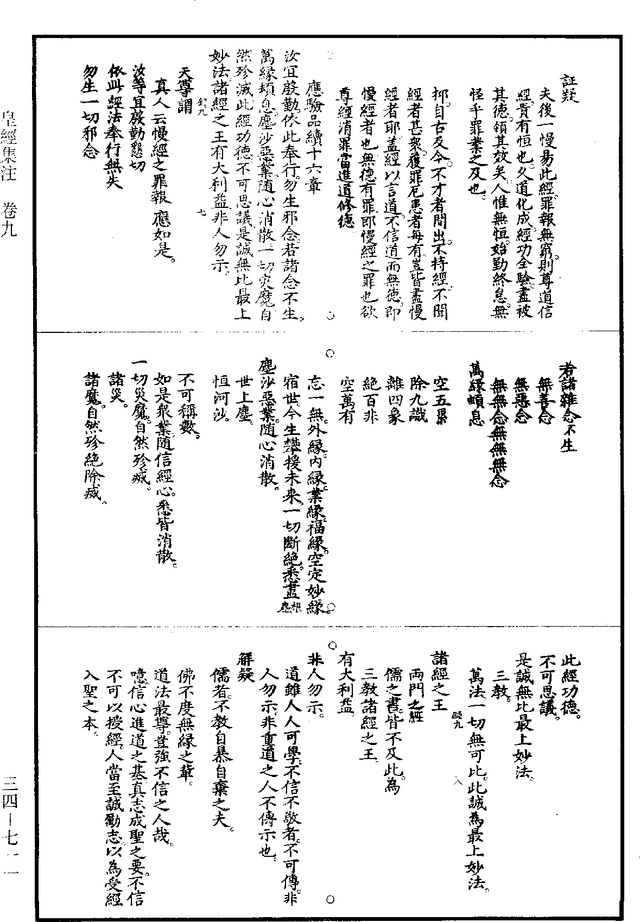 證疑
夫後一慢易此經罪報無窮則尊道信
經貴有恒也久道化成經功全驗盡被
其德領其效矣人惟無恒始勤終怠無
怪乎罪業之及也
抑自古及今不才者間出不持經不聞
經者甚眾獲罪厄患者每有豈皆盡慢
經者耶蓋經以言道不信道而無德即
慢經者也無德有罪即慢經之罪也欲
尊經消罪當進道修德
應驗品續十六章
汝宜殷勤依此奉行勿生邪念若諸念不生
萬緣頓息塵沙惡業隨心消散一切災魔自
然殄滅此經功德不可思議是誠無比最上
妙法諸經之王有大利益非人勿示
七
天尊謂
真人云慢經之罪報應如是
汝等宜殷勤懇切
依此經法奉行無失
勿生一切邪念
若諸雜念不生
無善念
無惡念
無無念無無無念
萬緣頓息
空五累
除九識
離四象
絕百非
空萬有
忘一無外緣內緣業緣福緣空定妙緣
宿世今生攀援未來一切斷絕悉盡
塵沙惡業隨心消散
世上塵
恒河沙
不可稱數
如是眾業隨信經心悉皆消散
一切災魔自然殄滅
諸災
諸魔自然殄絕除滅
此經功德
不可思議
是誠無比最上妙法
三教
萬法一切無可比此誠為最上妙法
八
諸經之王
兩門之經
儒之書皆不及此為
三教諸經之王
有大利益
非人勿示
道雖人人可學不信不敬者不可傳非
人勿示非重道之人不傳示也
解疑
儒者不教自暴自棄之夫
佛不度無緣之輩
道法最尊豈強不信之人哉
噫信心進道之基真志成聖之要不信
不可以授經人當至誠勵志以為受經
入聖之本
皇經集注 卷九
三四－七一一